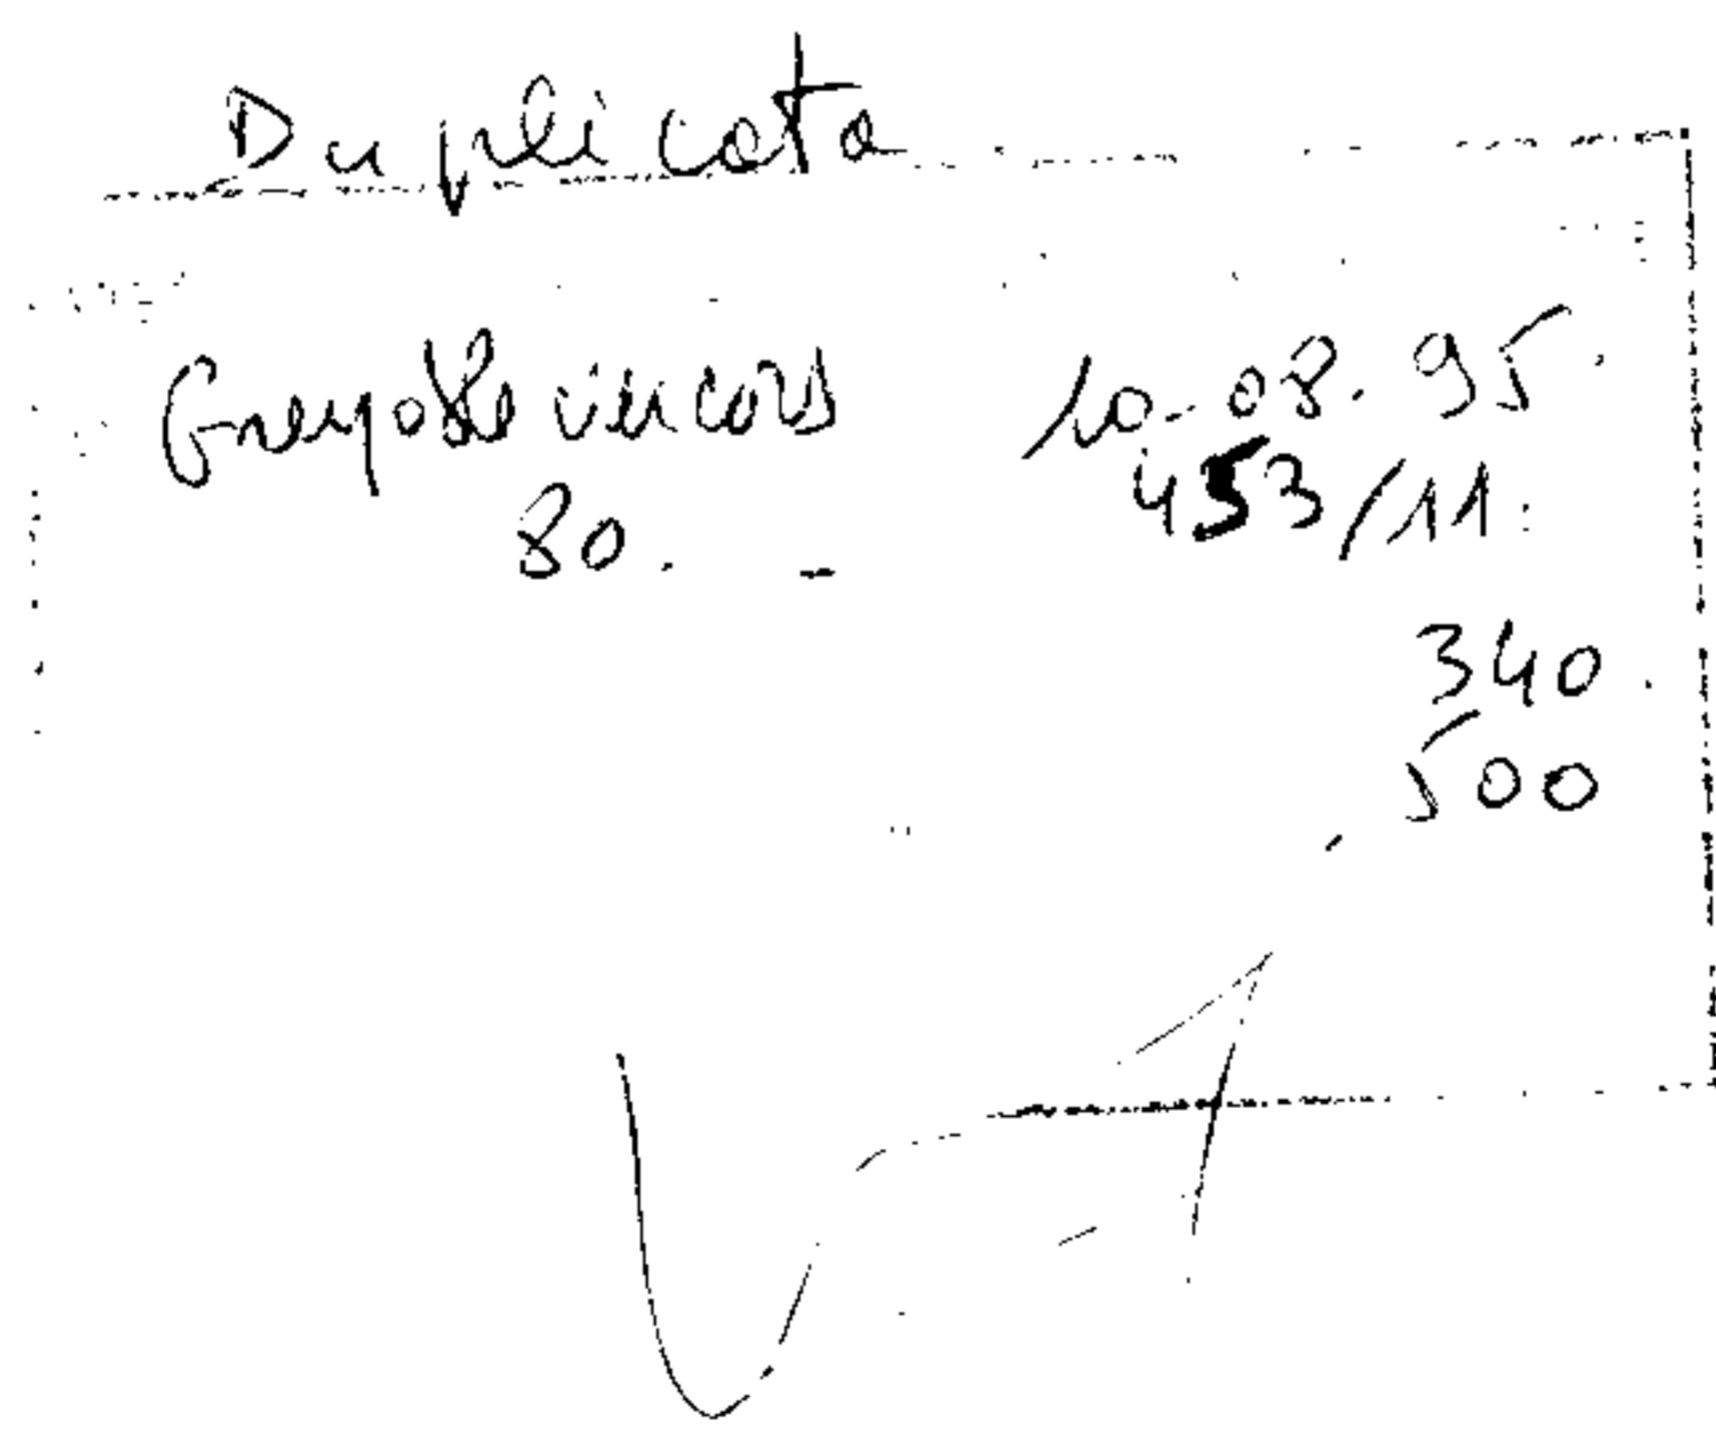 Duplicata
Grenoble vercors 10-08.95
453/11
80. -
340
500